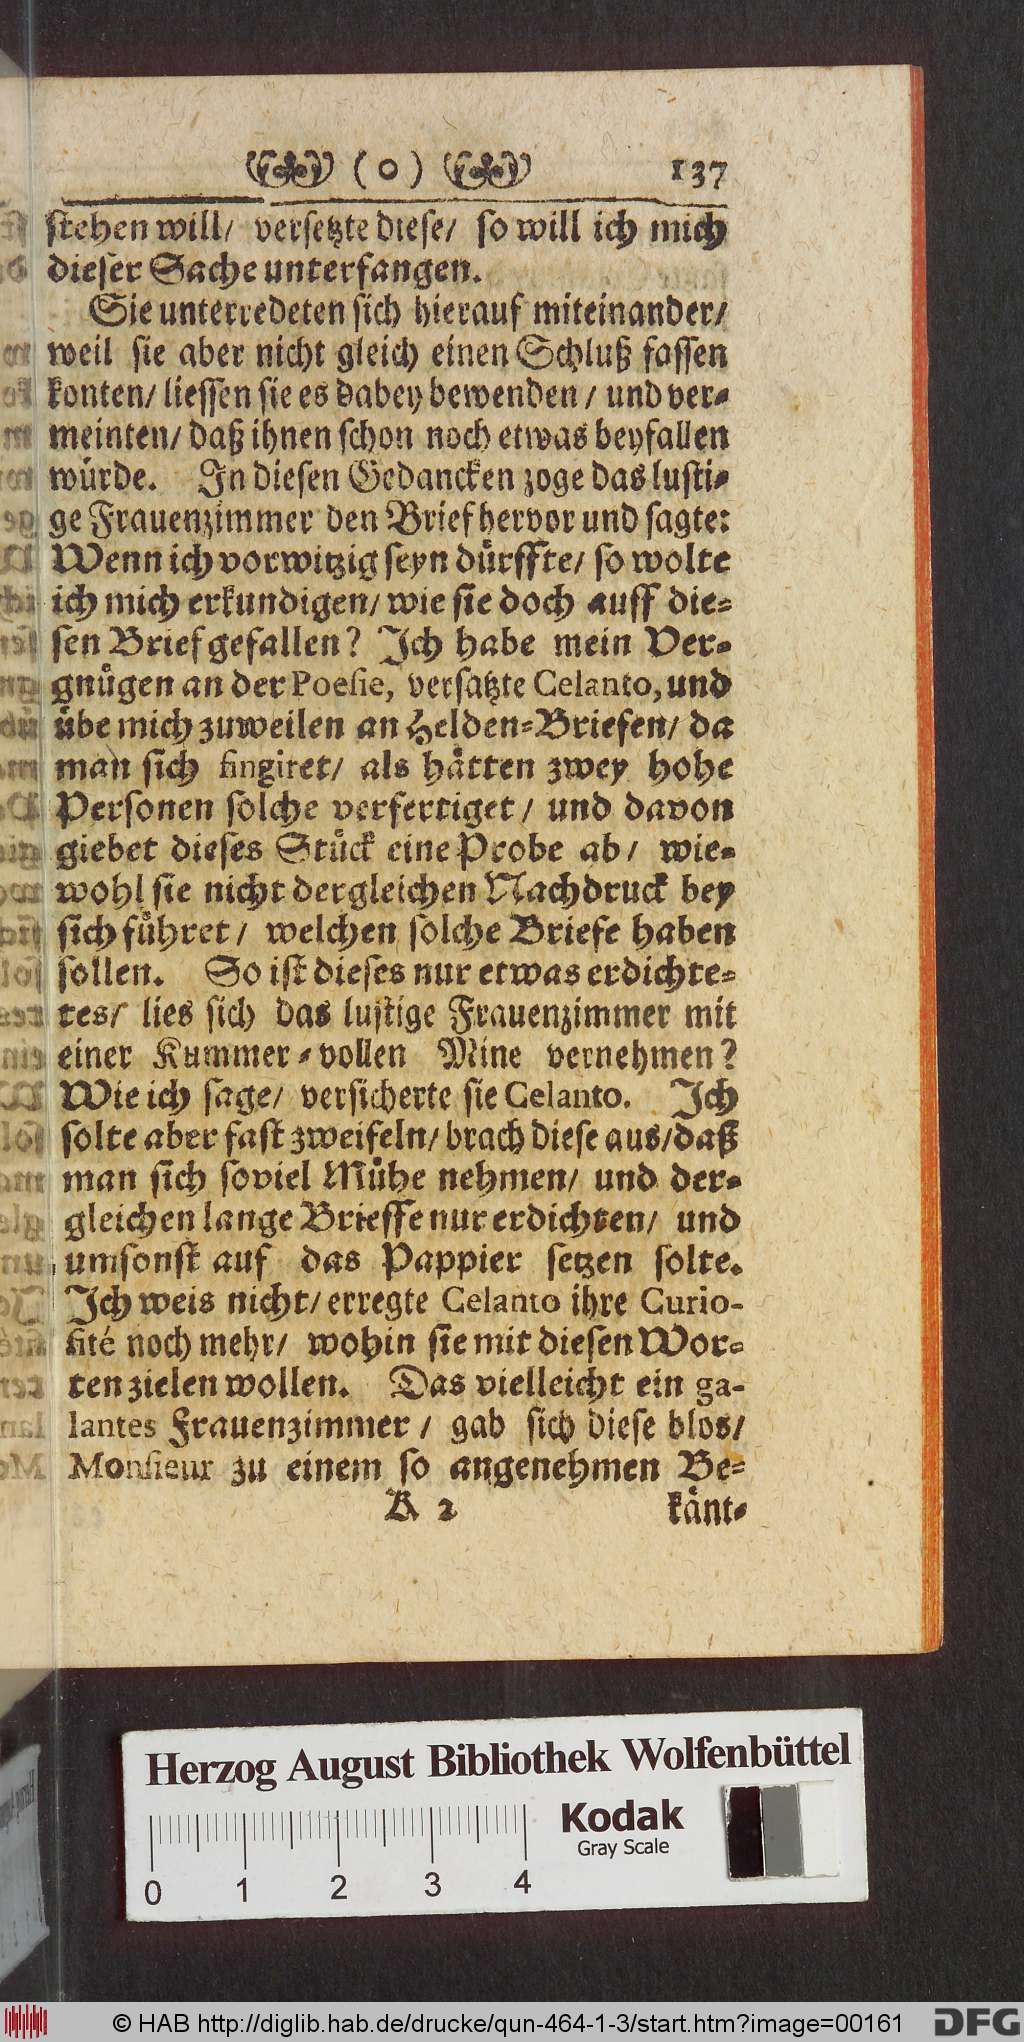 ( o ) 137
stehen will/ versetzte diese/ so will ich mich
dieser Sache unterfangen.
Sie unterredeten sich hierauf miteinander/
weil sie aber nicht gleich einen Schluß fassen
konten/ liessen sie es dabey bewenden/ und ver-
meinten/ daß ihnen schon noch etwas beyfallen
würde. In diesen Gedancken zoge das lusti-
ge Frauenzimmer den Brief hervor und sagte:
Wenn ich vorwitzig seyn dürffte/ so wolte
ich mich erkundigen/ wie sie doch auff die-
sen Brief gefallen? Ich habe mein Ver-
gnügen an der Poesie, versatzte Celanto, und
übe mich zuweilen an Helden-Briefen/ da
man sich fingiret/ als hätten zwey hohe
Personen solche verfertiget/ und davon
giebet dieses Stück eine Probe ab/ wie-
wohl sie nicht dergleichen Nachdruck bey
sich führet/ welchen solche Briefe haben
sollen. So ist dieses nur etwas erdichte-
tes/ lies sich das lustige Frauenzimmer mit
einer Kummer-vollen Mine vernehmen?
Wie ich sage/ versicherte sie Celanto. Ich
solte aber fast zweifeln/ brach diese aus/ daß
man sich soviel Mühe nehmen/ und der-
gleichen lange Brieffe nur erdichten/ und
umsonst auf das Pappier setzen solte.
Ich weis nicht/ erregte Celanto ihre Curio-
sité noch mehr/ wohin sie mit diesen Wor-
ten zielen wollen. Das vielleicht ein ga-
lantes Frauenzimmer/ gab sich diese blos/
Monsieur zu einem so angenehmen Be-
K 2 känt-
Herzog August Bibliothek Wolfenbüttel
Kodak
Gray Scale
0 1 2 3 4
© HAB http://diglib.hab.de/drucke/qun-464-1-3/start.htm?image=00161 DFG